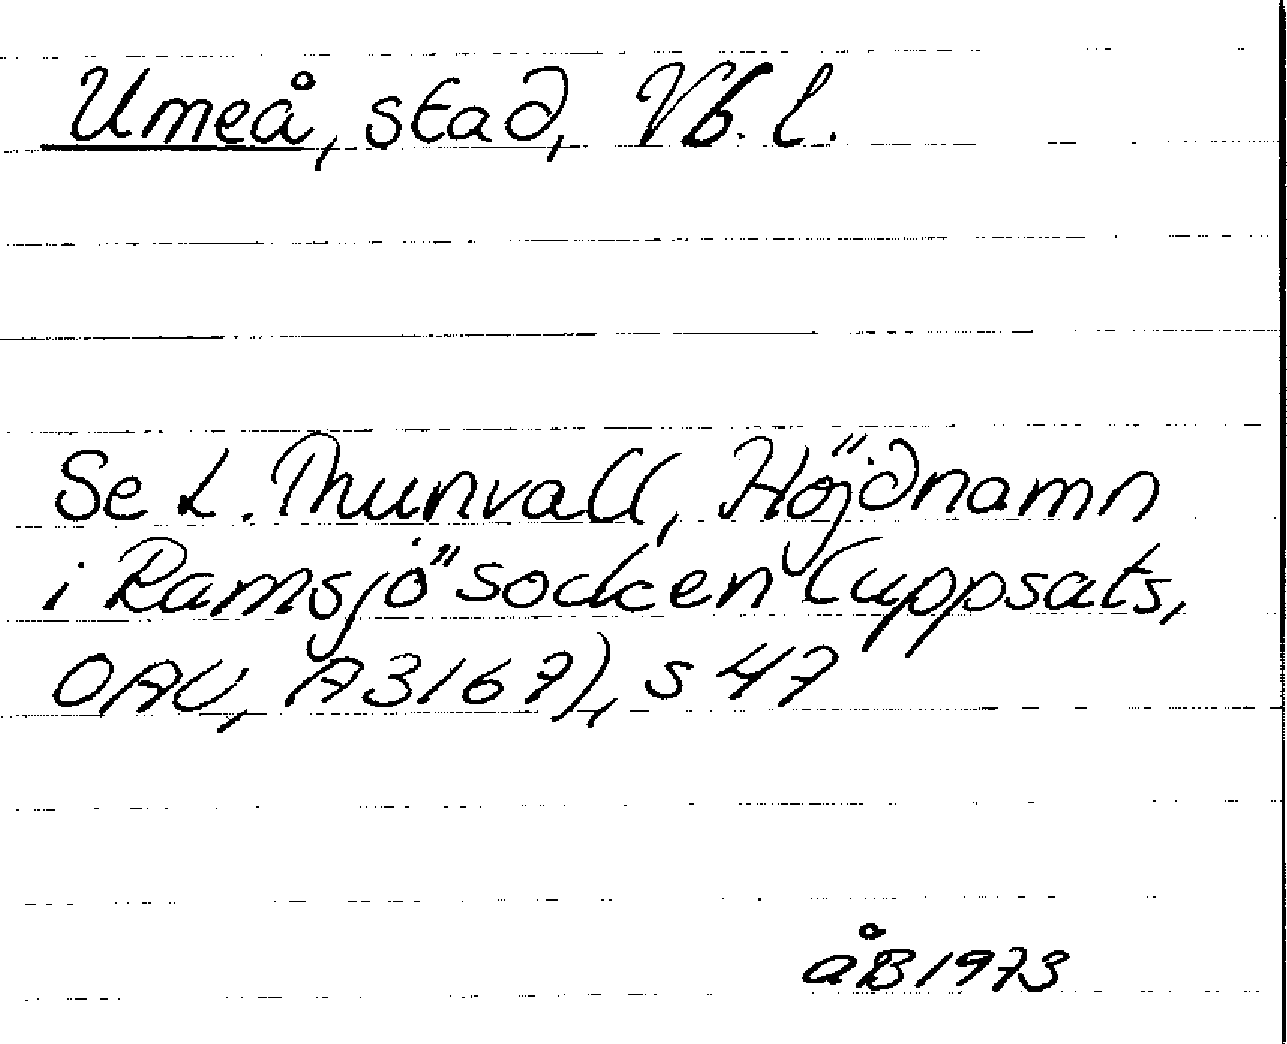 Umeå, stad, Vb. l.
Se L. Thunvall, Höjdnamn
i Ramsjö socken (uppsats,
OAU, A3167), s 47
åB 1973